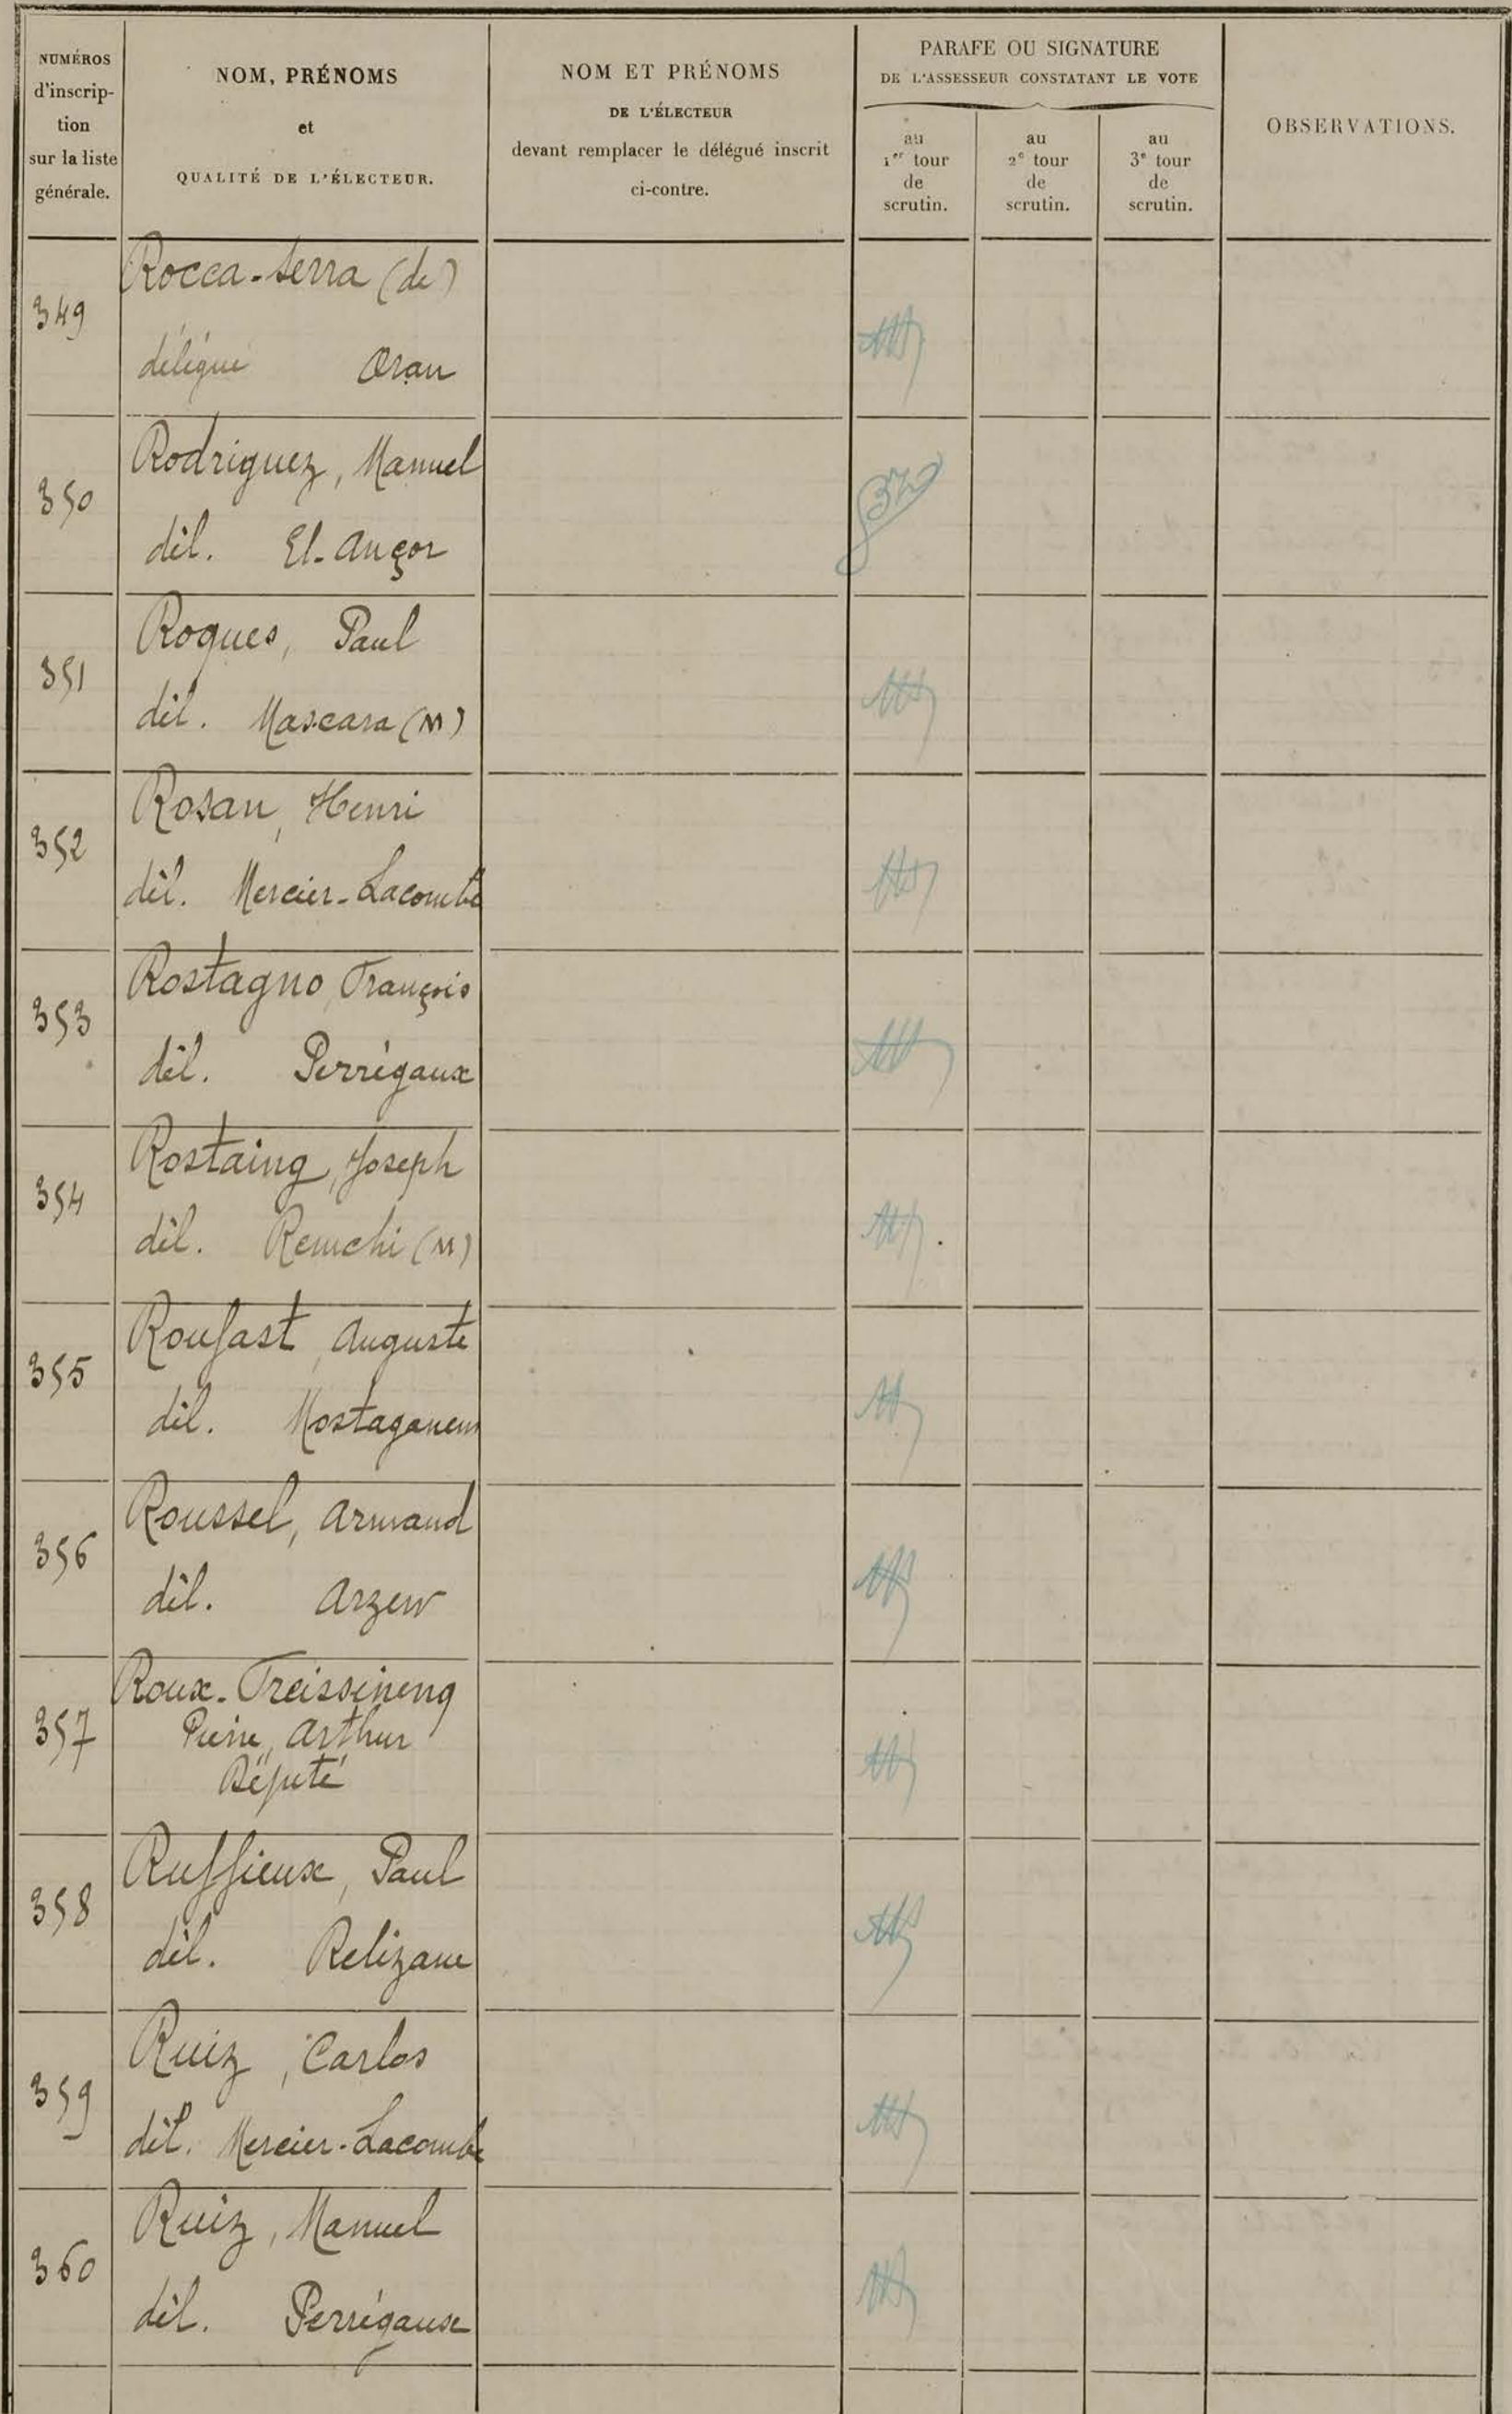 NUMÉROS
d'inscrip-
tion
sur la liste
générale.
NOM, PRÉNOMS
et
QUALITÉ DE L'ÉLECTEUR.
NOM ET PRÉNOMS
DE L'ÉLECTEUR
devant remplacer le délégué inscrit
ci-contre.
PARAFE OU SIGNATURE
DE L'ASSESSEUR CONSTATANT LE VOTE
au
1er tour
de
scrutin.
au
2e tour
de
scrutin.
au
3e tour
de
scrutin.
OBSERVATIONS.
349
Rocca-Serra (de)
délégué Oran
350
Rodriguez, Manuel
dél. El-Ançor
351
Roques, Paul
dél. Mascara (M)
352
Rosan, Henri
dél. Mercier-Lacombe
353
Rostagno, François
dél. Perrégaux
354
Rostaing, Joseph
dél. Remchi (M)
355
Roufast, Auguste
dél. Mostaganem
356
Roussel, Armand
dél. Arzew
357
Roux-Freissineng
Pierre, Arthur
Député
358
Ruffieux, Paul
dél. Relizane
359
Ruiz, Carlos
dél. Mercier-Lacombe
360
Ruiz, Manuel
dél. Perrégaux